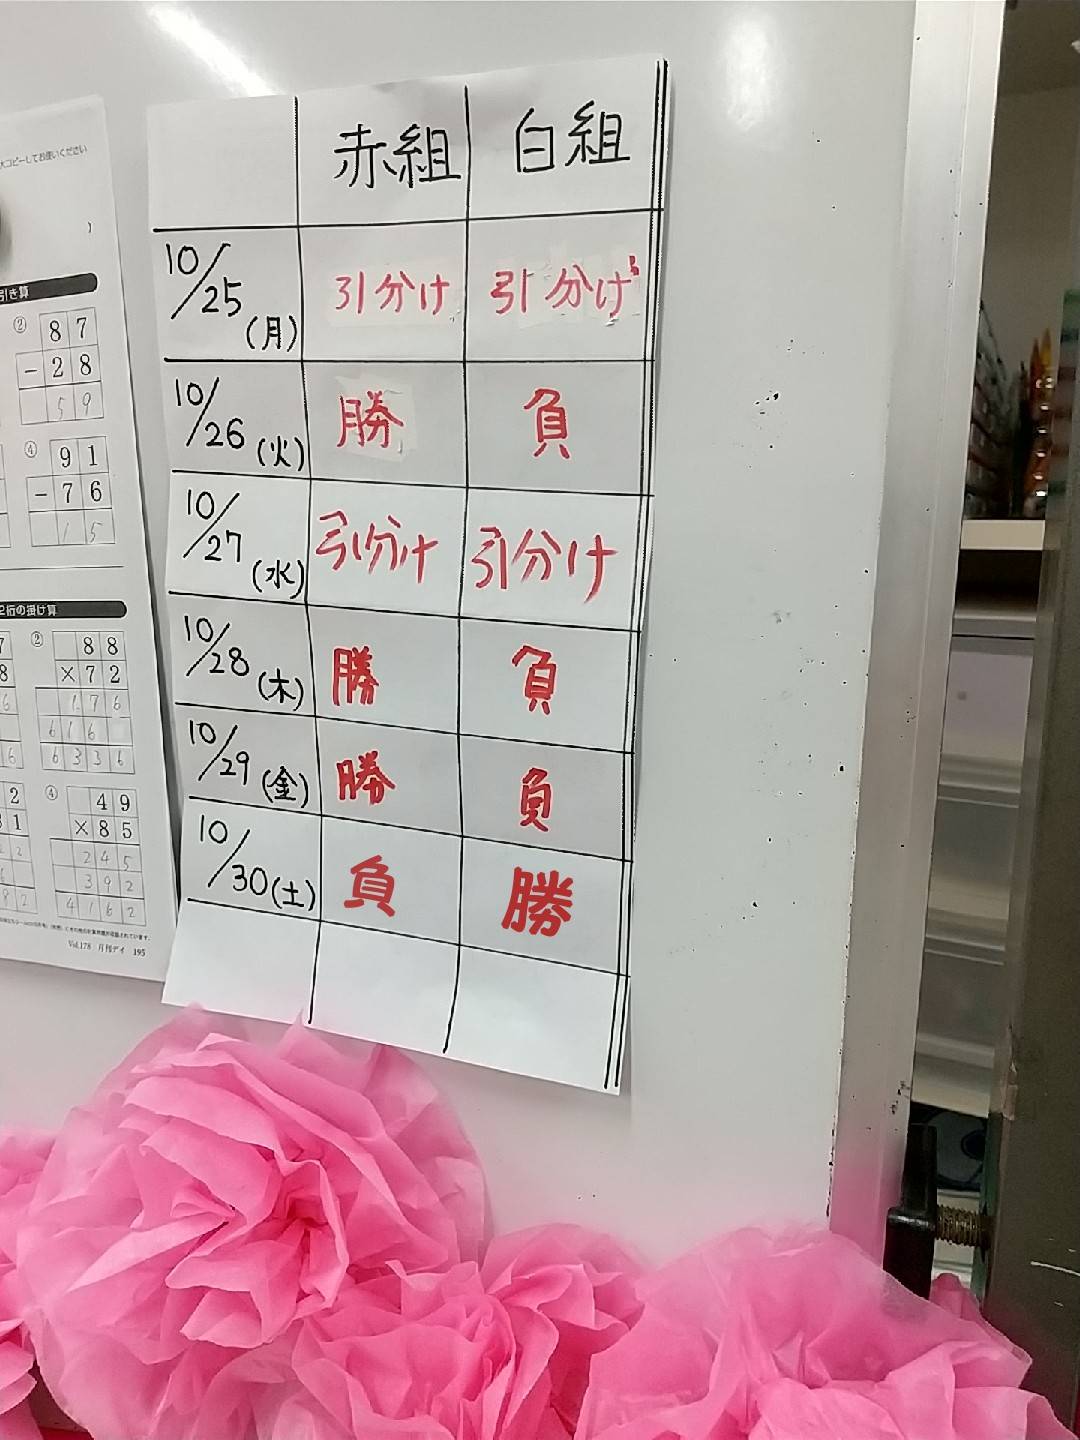 大コピーしてお使いください
引き算
② 87
-28
59
④ 91
-76
15
2桁の掛け算
② 88
×72
176
616
6336
④ 49
×85
245
392
4162
Vol.178 月刊デイ 195
赤組 白組
10/25(月) 引分け 引分け
10/26(火) 勝 負
10/27(水) 引分け 引分け
10/28(木) 勝 負
10/29(金) 勝 負
10/30(土) 負 勝